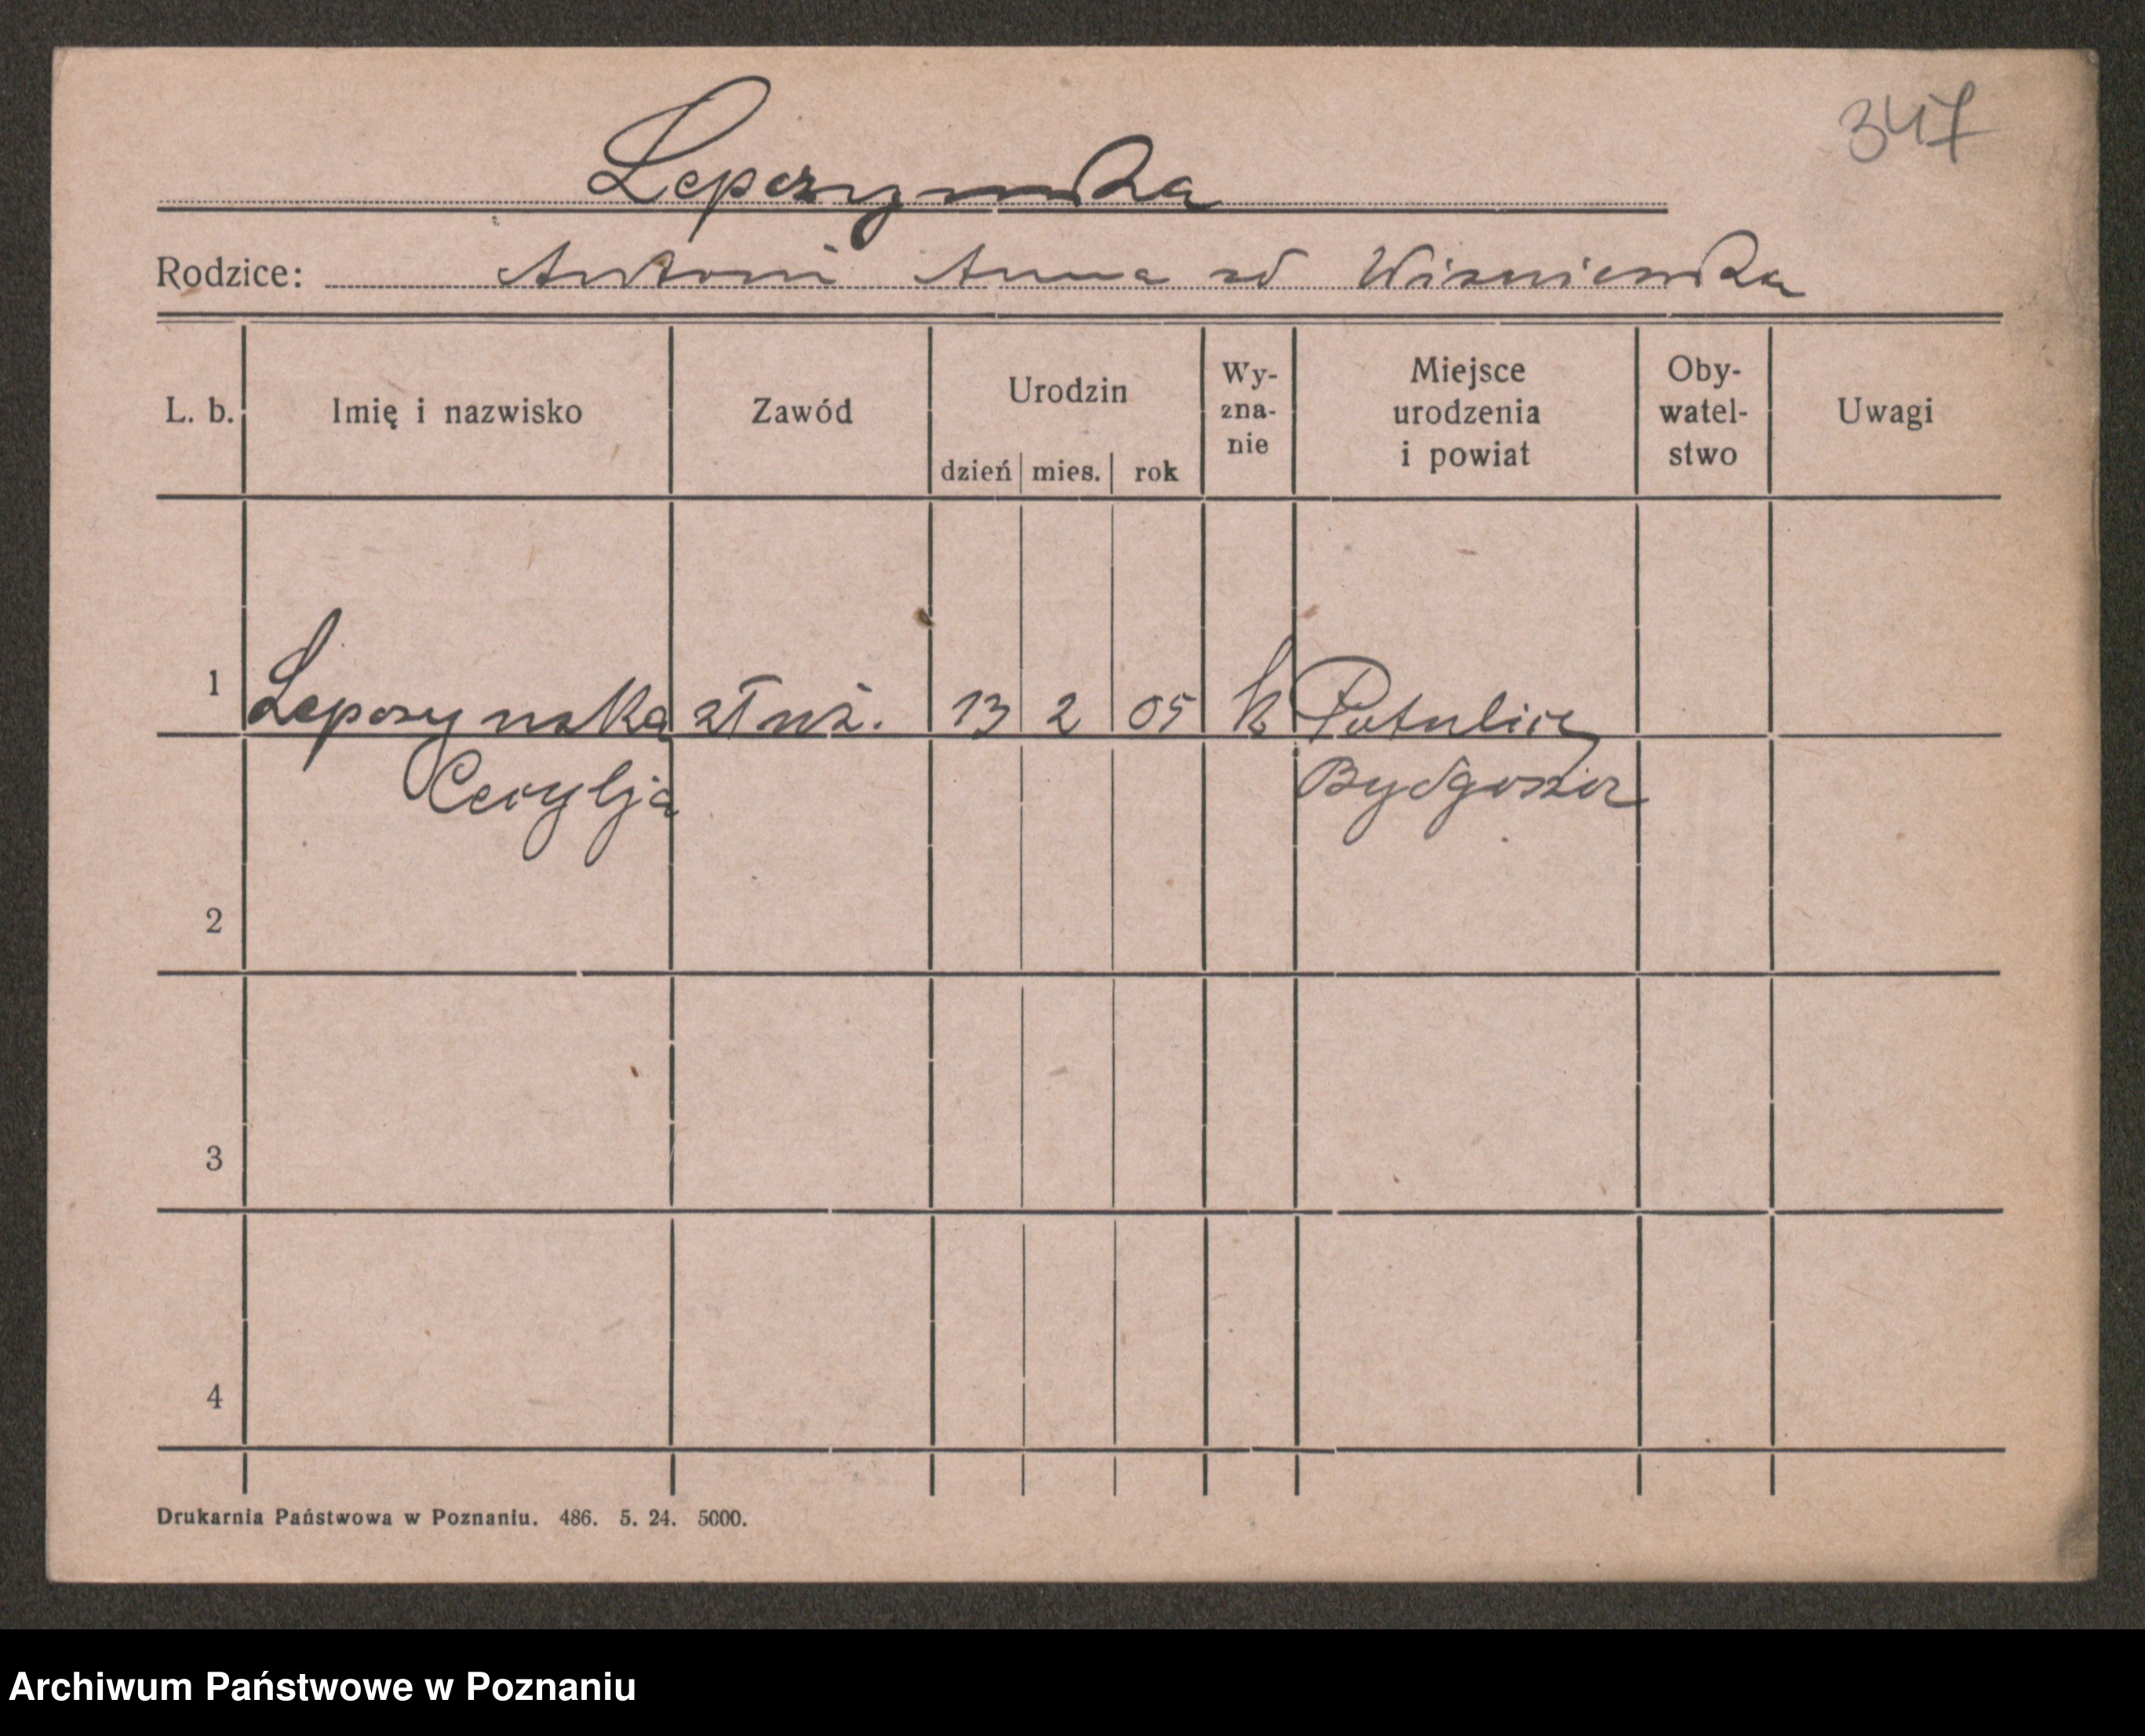 347
Lepczynska
Rodzice: Antoni Anna zd Wisniewska
L. b. Imię i nazwisko Zawód Urodzin dzień mies. rok Wy-zna-nie Miejsce urodzenia i powiat Oby-watel-stwo Uwagi
1 Lepczynska służ. 13 2 05 k Potulice
Cecylja Bydgoszcz
2
3
4
Drukarnia Państwowa w Poznaniu. 486. 5. 24. 5000.
Archiwum Państwowe w Poznaniu